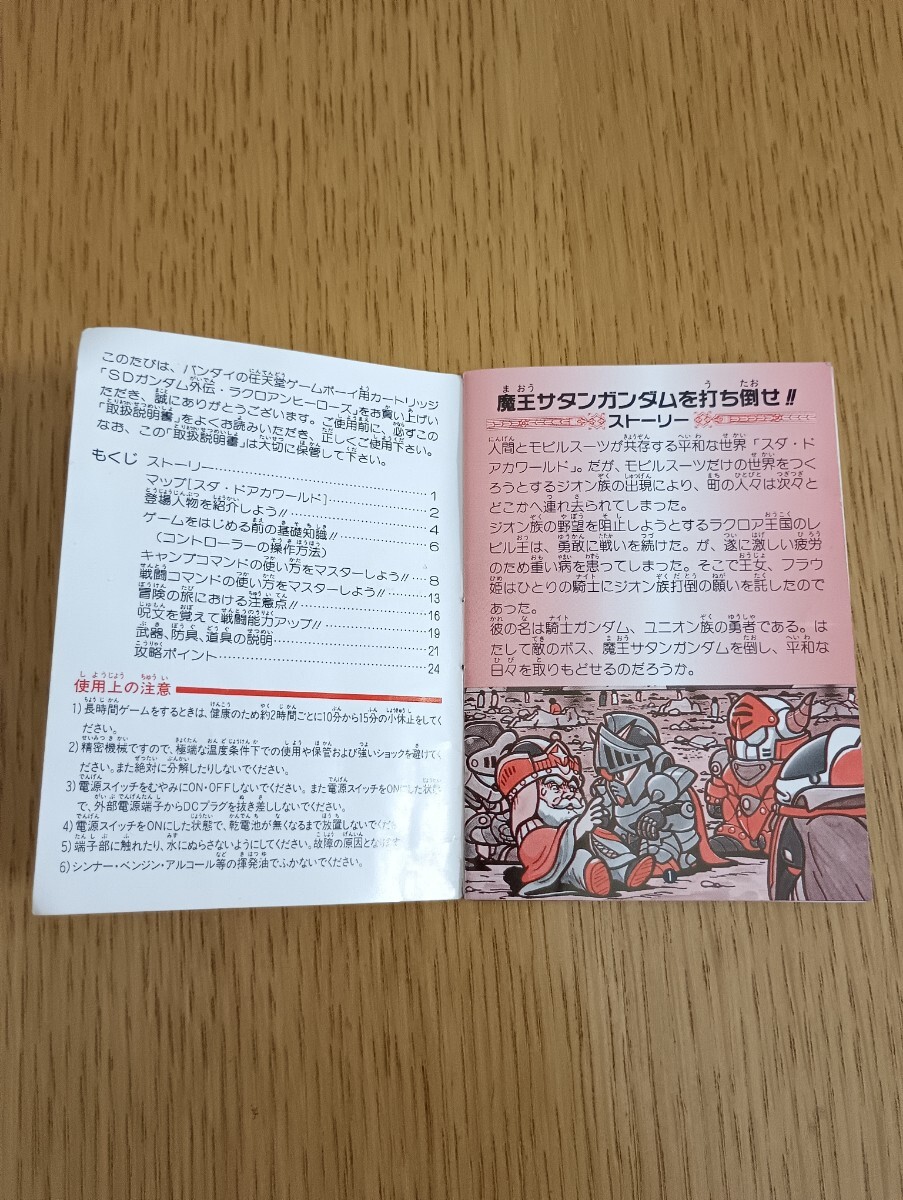 このたびは、バンダイの任天堂ゲームボーイ用カートリッジ
「SDガンダム外伝・ラクロアンヒーローズ」をお買い上げい
ただき、誠にありがとうございます。ご使用前に、必ずこの
「取扱説明書」をよくお読みいただき、正しくご使用下さい。
なお、この「取扱説明書」は大切に保管して下さい。
もくじ ストーリー…………1
マップ[スタ・ドアカワールド]…………2
登場人物を紹介しよう!!…………4
ゲームをはじめる前の基礎知識!!…………6
(コントローラーの操作方法)
キャンプコマンドの使い方をマスターしよう!!…8
戦闘コマンドの使い方をマスターしよう!!…………13
冒険の旅における注意点!!…………16
呪文を覚えて戦闘能力アップ!!…………19
武器、防具、道具の説明…………21
攻略ポイント…………24
使用上の注意
1) 長時間ゲームをするときは、健康のため約2時間ごとに10分から15分の小休止をしてく
ださい。
2) 精密機械ですので、極端な温度条件下での使用や保管および強いショックを避けてく
ださい。また絶対に分解したりしないでください。
3) 電源スイッチをむやみにON・OFFしないでください。また電源スイッチをONにした状態
で、外部電源端子からDCプラグを抜き差ししないでください。
4) 電源スイッチをONにした状態で、乾電池が無くなるまで放置しないでく
5) 端子部に触れたり、水にぬらさないようにしてください。故障の原因となり
6) シンナー・ベンジン・アルコール等の揮発油でふかないでください。
魔王サタンガンダムを打ち倒せ!!
ストーリー
人間とモビルスーツが共存する平和な世界「スタ・ド
アカワールド」。だが、モビルスーツだけの世界をつく
ろうとするジオン族の出現により、町の人々は次々と
どこかへ連れ去られてしまった。
ジオン族の野望を阻止しようとするラクロア王国のレ
ビル王は、勇敢に戦いを続けた。が、遂に激しい疲労
のため重い病を患ってしまった。そこで王女、フラウ
姫はひとりの騎士にジオン族打倒の願いを託したので
あった。
彼の名は騎士ガンダム、ユニオン族の勇者である。は
たして敵のボス、魔王サタンガンダムを倒し、平和な
日々を取りもどせるのだろうか。